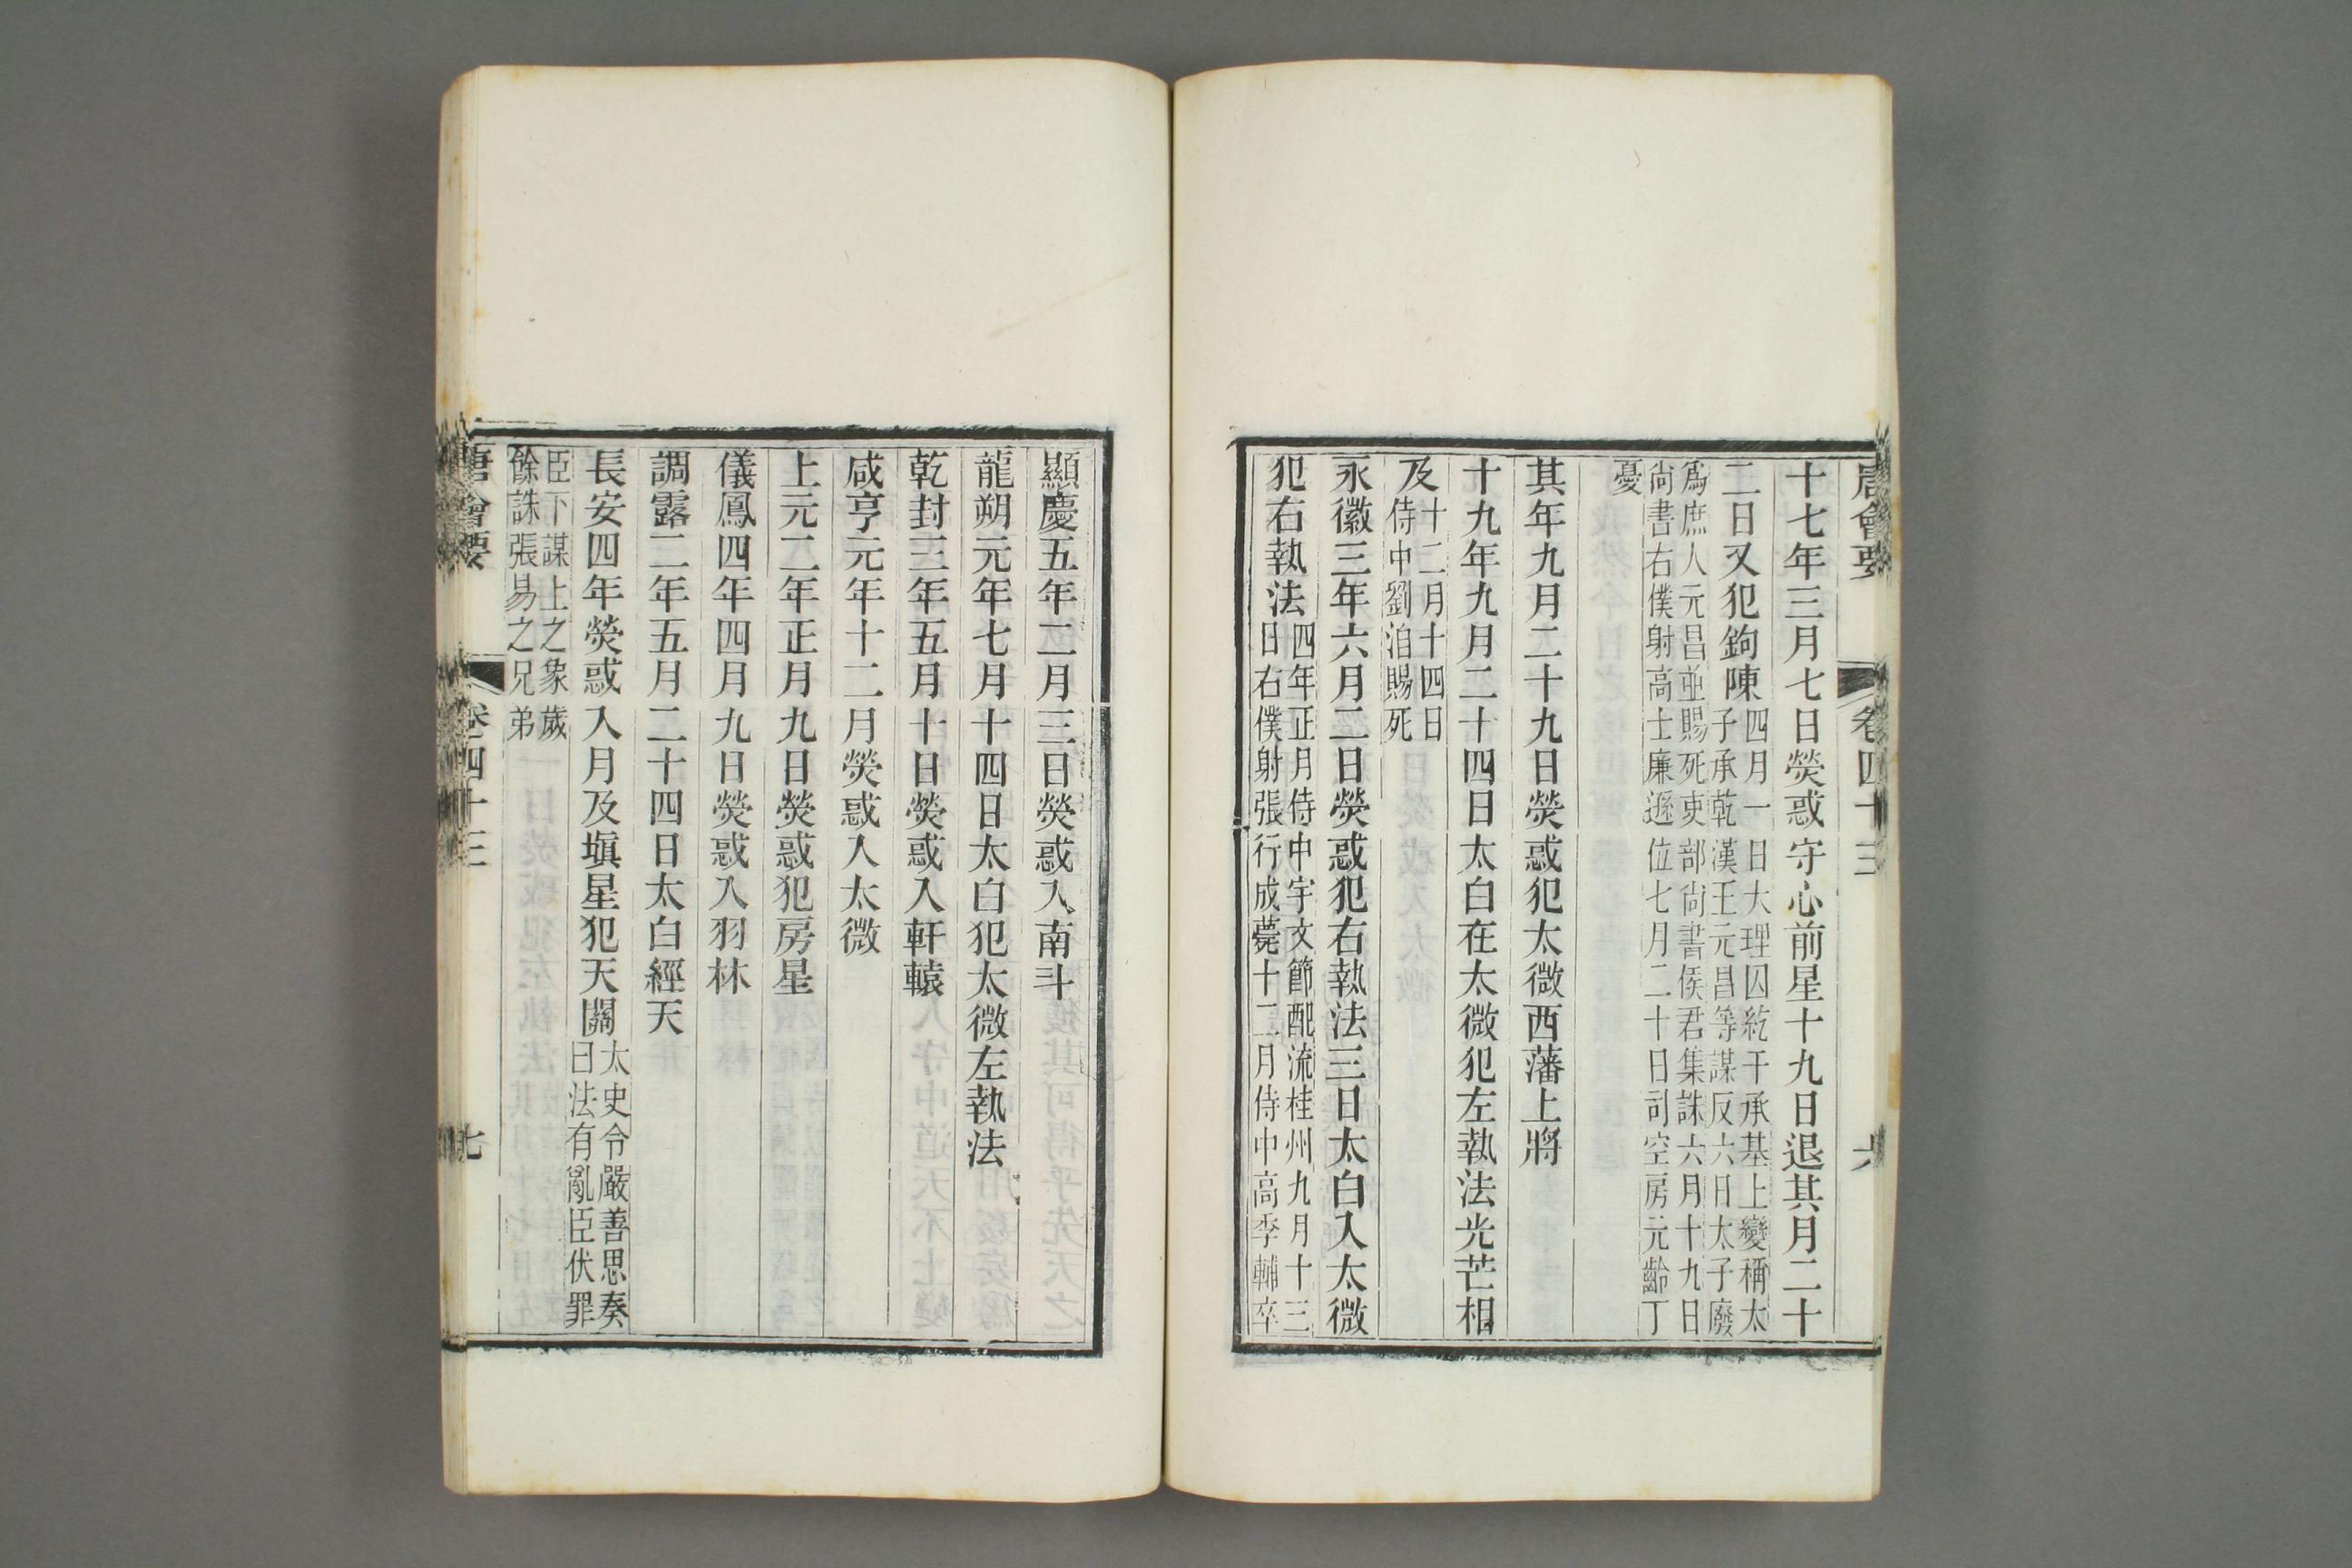 唐會要 卷四十三 六
十七年三月七日熒惑守心前星十九日退其月二十
二日又犯鉤陳四月一日大理囚紇干承基上變稱太
子承乾漢王元昌等謀反六日太子廢
爲庶人元昌並賜死吏部尙書侯君集誅六月十九日
尙書右僕射高士廉遜位七月二十日司空房元齡丁
憂
其年九月二十九日熒惑犯太微西藩上將
十九年九月二十四日太白在太微犯左執法光芒相
及十二月十四日
侍中劉洎賜死
永徽三年六月二日熒惑犯右執法三日太白入太微
犯右執法四年正月侍中宇文節配流桂州九月十三
日右僕射張行成薨十二月侍中高季輔卒
顯慶五年二月三日熒惑入南斗
龍朔元年七月十四日太白犯太微左執法
乾封三年五月十日熒惑入軒轅
咸亨元年十二月熒惑入太微
上元二年正月九日熒惑犯房星
儀鳳四年四月九日熒惑入羽林
調露二年五月二十四日太白經天
長安四年熒惑入月及塡星犯天關太史令嚴善思奏
曰法有亂臣伏罪
臣下謀上之象歲
餘誅張易之兄弟
唐會要 卷四十三 七